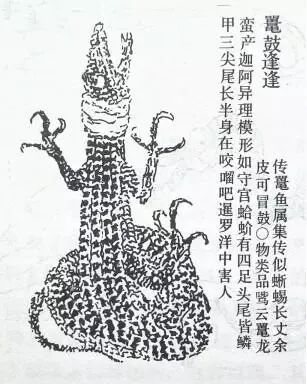 鼍鼓逢逢
传鼍鱼属集传似蜥蜴长丈余
皮可冒鼓○物类品骘云鼍龙
蛮产迦阿异理模形如守宫蛤蚧有四足头尾皆鳞
甲三尖尾长半身在咬𠺕吧暹罗洋中害人